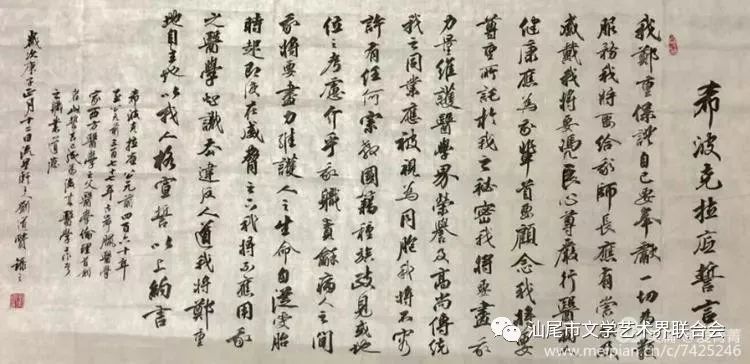 希波克拉底誓言
我鄭重保證自己要奉獻一切為人
服務我將要給我師長應有崇
感戴我將要憑良心尊嚴行醫病
健康應為我輩首要顧念我將要
尊重所託於我之秘密我將要盡我
力量維護醫學界榮譽及高尚傳統
我之同業應被視為同胞我將不容
許有任何宗教國籍種族政見或地
位之考慮介乎我職責和病人之間
我將要盡力維護人之生命自從受胎
時起即使在威脅之下我將不應用我
之醫學知識去違反人道我將鄭重
地自主地以我人格宣誓以上約言
希波克拉底公元前四百六十年
至公元前三百七十七年古希臘醫學
家西方醫學之父醫學倫理首創
歲次庚子正月十二日
汕尾市文学艺术界联合会
www.meipian.cn/c/7425246